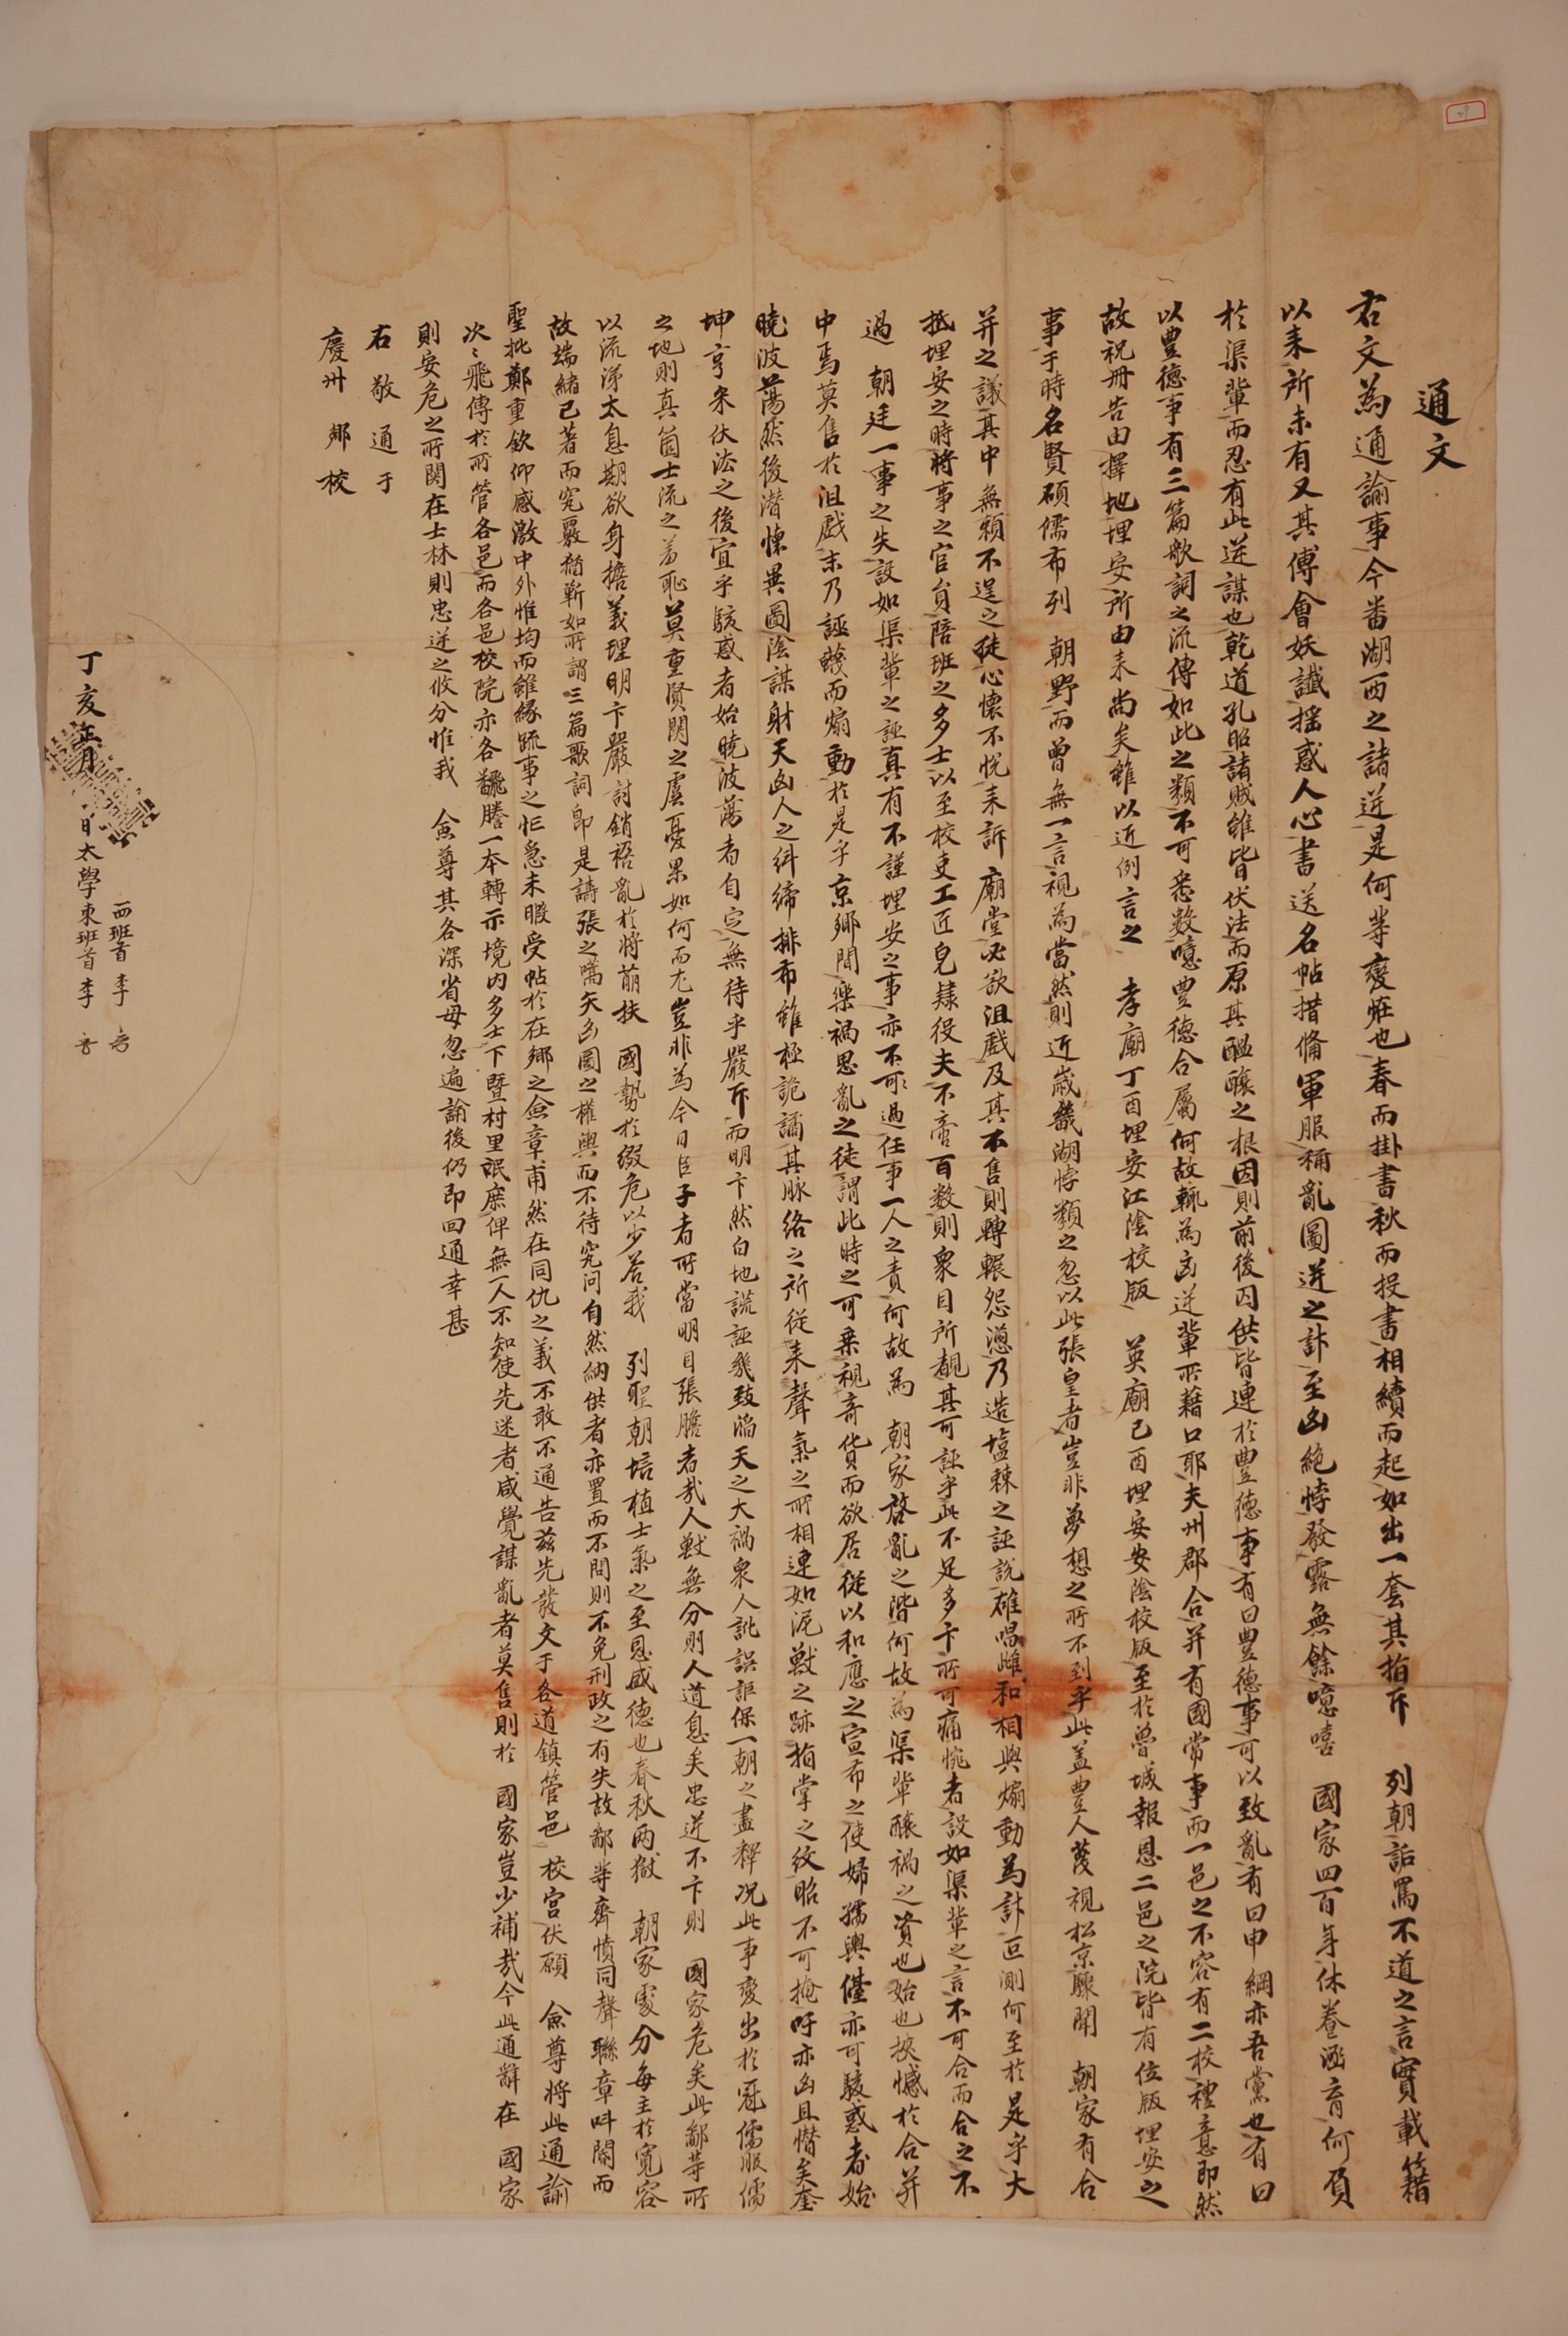 通文
右文為通諭事今番湖西之諸逆是何等變恠也春而掛書秋而投書相續而起如出一套其指斥 列朝詬罵不道之言實載籍
以来所未有又其傅會妖讖揺惑人心書送名帖措備軍服稱亂圖逆之計至凶絶悖發露無餘噫嘻 國家四百年休養涵育何負
於渠輩而忍有此逆謀也乾道孔昭諸賊雖皆伏法而原其醞釀之根因則前後囚供皆連於豊德事有曰豊德事可以致亂有曰申綱亦吾黨也有曰
以豊德事有三篇歌詞之流傳如此之類不可悉數噫豊德合屬何故輒為凶逆輩所藉口耶夫州郡合并有國常事而一邑之不容有二校禮意即然
故祝册告由擇地埋安所由来尚矣雖以近例言之 孝廟丁酉埋安江陰校版 英廟己酉埋安安陰校版至於魯城報恩二邑之院皆有位版埋安之
事于時名賢碩儒布列 朝野而曾無一言視為當然則近歲畿湖悖類之忽以此張皇者豈非夢想之所不到乎此盖豊人蔑視松京驟聞 朝家有合
并之議其中無賴不逞之徒心懷不悅来訴 廟堂必欲沮戲及其不售則轉輾怨懟乃造塩棘之誣說雄唱雌和相與煽動為計叵測何至於是乎大
抵埋安之時將事之官員陪班之多士以至校吏工匠皃隷役夫不啻百數則衆目所覩其可誣乎此不足多卞所可痛惋者設如渠輩之言不可合而合之不
過 朝廷一事之失設如渠輩之誣真有不謹埋安之事亦不可過任事一人之責何故為 朝家啓亂之階何故為渠輩釀禍之資也始也挾憾於合并
中焉莫售於沮戲末乃誣衊而煽動於是乎京鄉間樂禍思亂之徒謂此時之可乗視奇貨而欲居從以和應之宣布之使婦孺輿儓亦可駭惑者始
曉波蕩然後潜懷異圖陰謀射天凶人之糾締排布雖極詭譎其脉絡之所從来聲氣之所相連如泥獸之跡指掌之紋昭不可掩吁亦凶且憯矣奎
坤亨宋伏法之後宜乎駭惑者始曉波蕩者自定無待乎嚴斥而明卞然白地謊誣幾致滔天之大禍衆人訛誤詎保一朝之盡釋况此事變出於冠儒服儒
之地則真箇士流之羞恥莫重賢関之虞憂果如何而尤豈非為今日臣子者所當明目張膽者㢤人獸無分則人道息矣忠逆不卞則 國家危矣此鄙等所
以流涕太息期欲身擔義理明卞嚴討銷祲亂於將萠扶 國勢於綴危以少荅我 列聖朝培植士氣之至恩盛德也春秋两獄 朝家處分每主於寛容
故端緒已著而究覈猶靳如所謂三篇歌詞即是譸張之嚆矢凶圖之權輿而不待究问自然納供者亦置而不問則不免刑政之有失故鄙等齊憤同聲聯章呌閽而
聖批鄭重欽仰感激中外惟均而雖緣䟽事之忙急未暇受帖於在鄉之僉章甫然在同仇之義不敢不通告玆先發文于各道鎮管邑 校宮伏願 僉尊將此通諭
次次飛傳於所管各邑而各邑校院亦各飜謄一本轉示境内多士下曁村里氓庶俾無一人不知使先迷者咸覺謀亂者莫售則於 國家豈少補㢤今此通辭在 國家
則安危之所関在士林則忠逆之攸分惟我 僉尊其各深省毋忽遍諭後仍即回通幸甚
右敬通于
慶州 鄉校
丁亥正月 日太學東班首李
西班首李